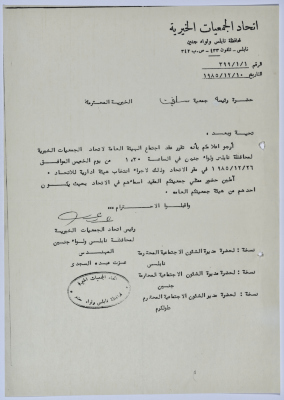 اتحاد الجمعيات الخيرية
لمحافظة نابلس ولواء جنين
نابلس - تلفون ٤٣٣ - ص.ب ٣٤٢
الرقم ٣٩٩/١/١
التاريخ ١٩٨٥/١٢/١٠
حضرة رئيسة جمعية الخيرية المحترمة
تحية وبعد :
أرجو اعلامكم بأنه تقرر عقد اجتماع الهيئة العامة لاتحاد الجمعيات الخيرية
لمحافظة نابلس ولواء جنين في الساعة ١٠،٣٠ من يوم الخميس الموافق
١٩٨٥/١٢/٢٦ في مقر الاتحاد وذلك لاجراء انتخاب هيئة ادارية للاتحاد .
آملين حضور ممثلي جمعيتكم المقيد اسماءهم في الاتحاد بحيث يكون
احدهم من هيئة جمعيتكم العامة .
واقبلوا الاحترام ،،،
رئيس اتحاد الجمعيات الخيرية
لمحافظة نابلس ولواء جنين
المهندس
عزت عبده المجدي
نسخة : لحضرة مديرة الشئون الاجتماعية المحترمة
نابلس
نسخة : لحضرة مديرة الشئون الاجتماعية المحترمة
جنين
نسخة : لحضرة مدير الشئون الاجتماعية المحترم
طولكرم
اتحاد الجمعيات الخيرية
لمحافظة نابلس ولواء جنين